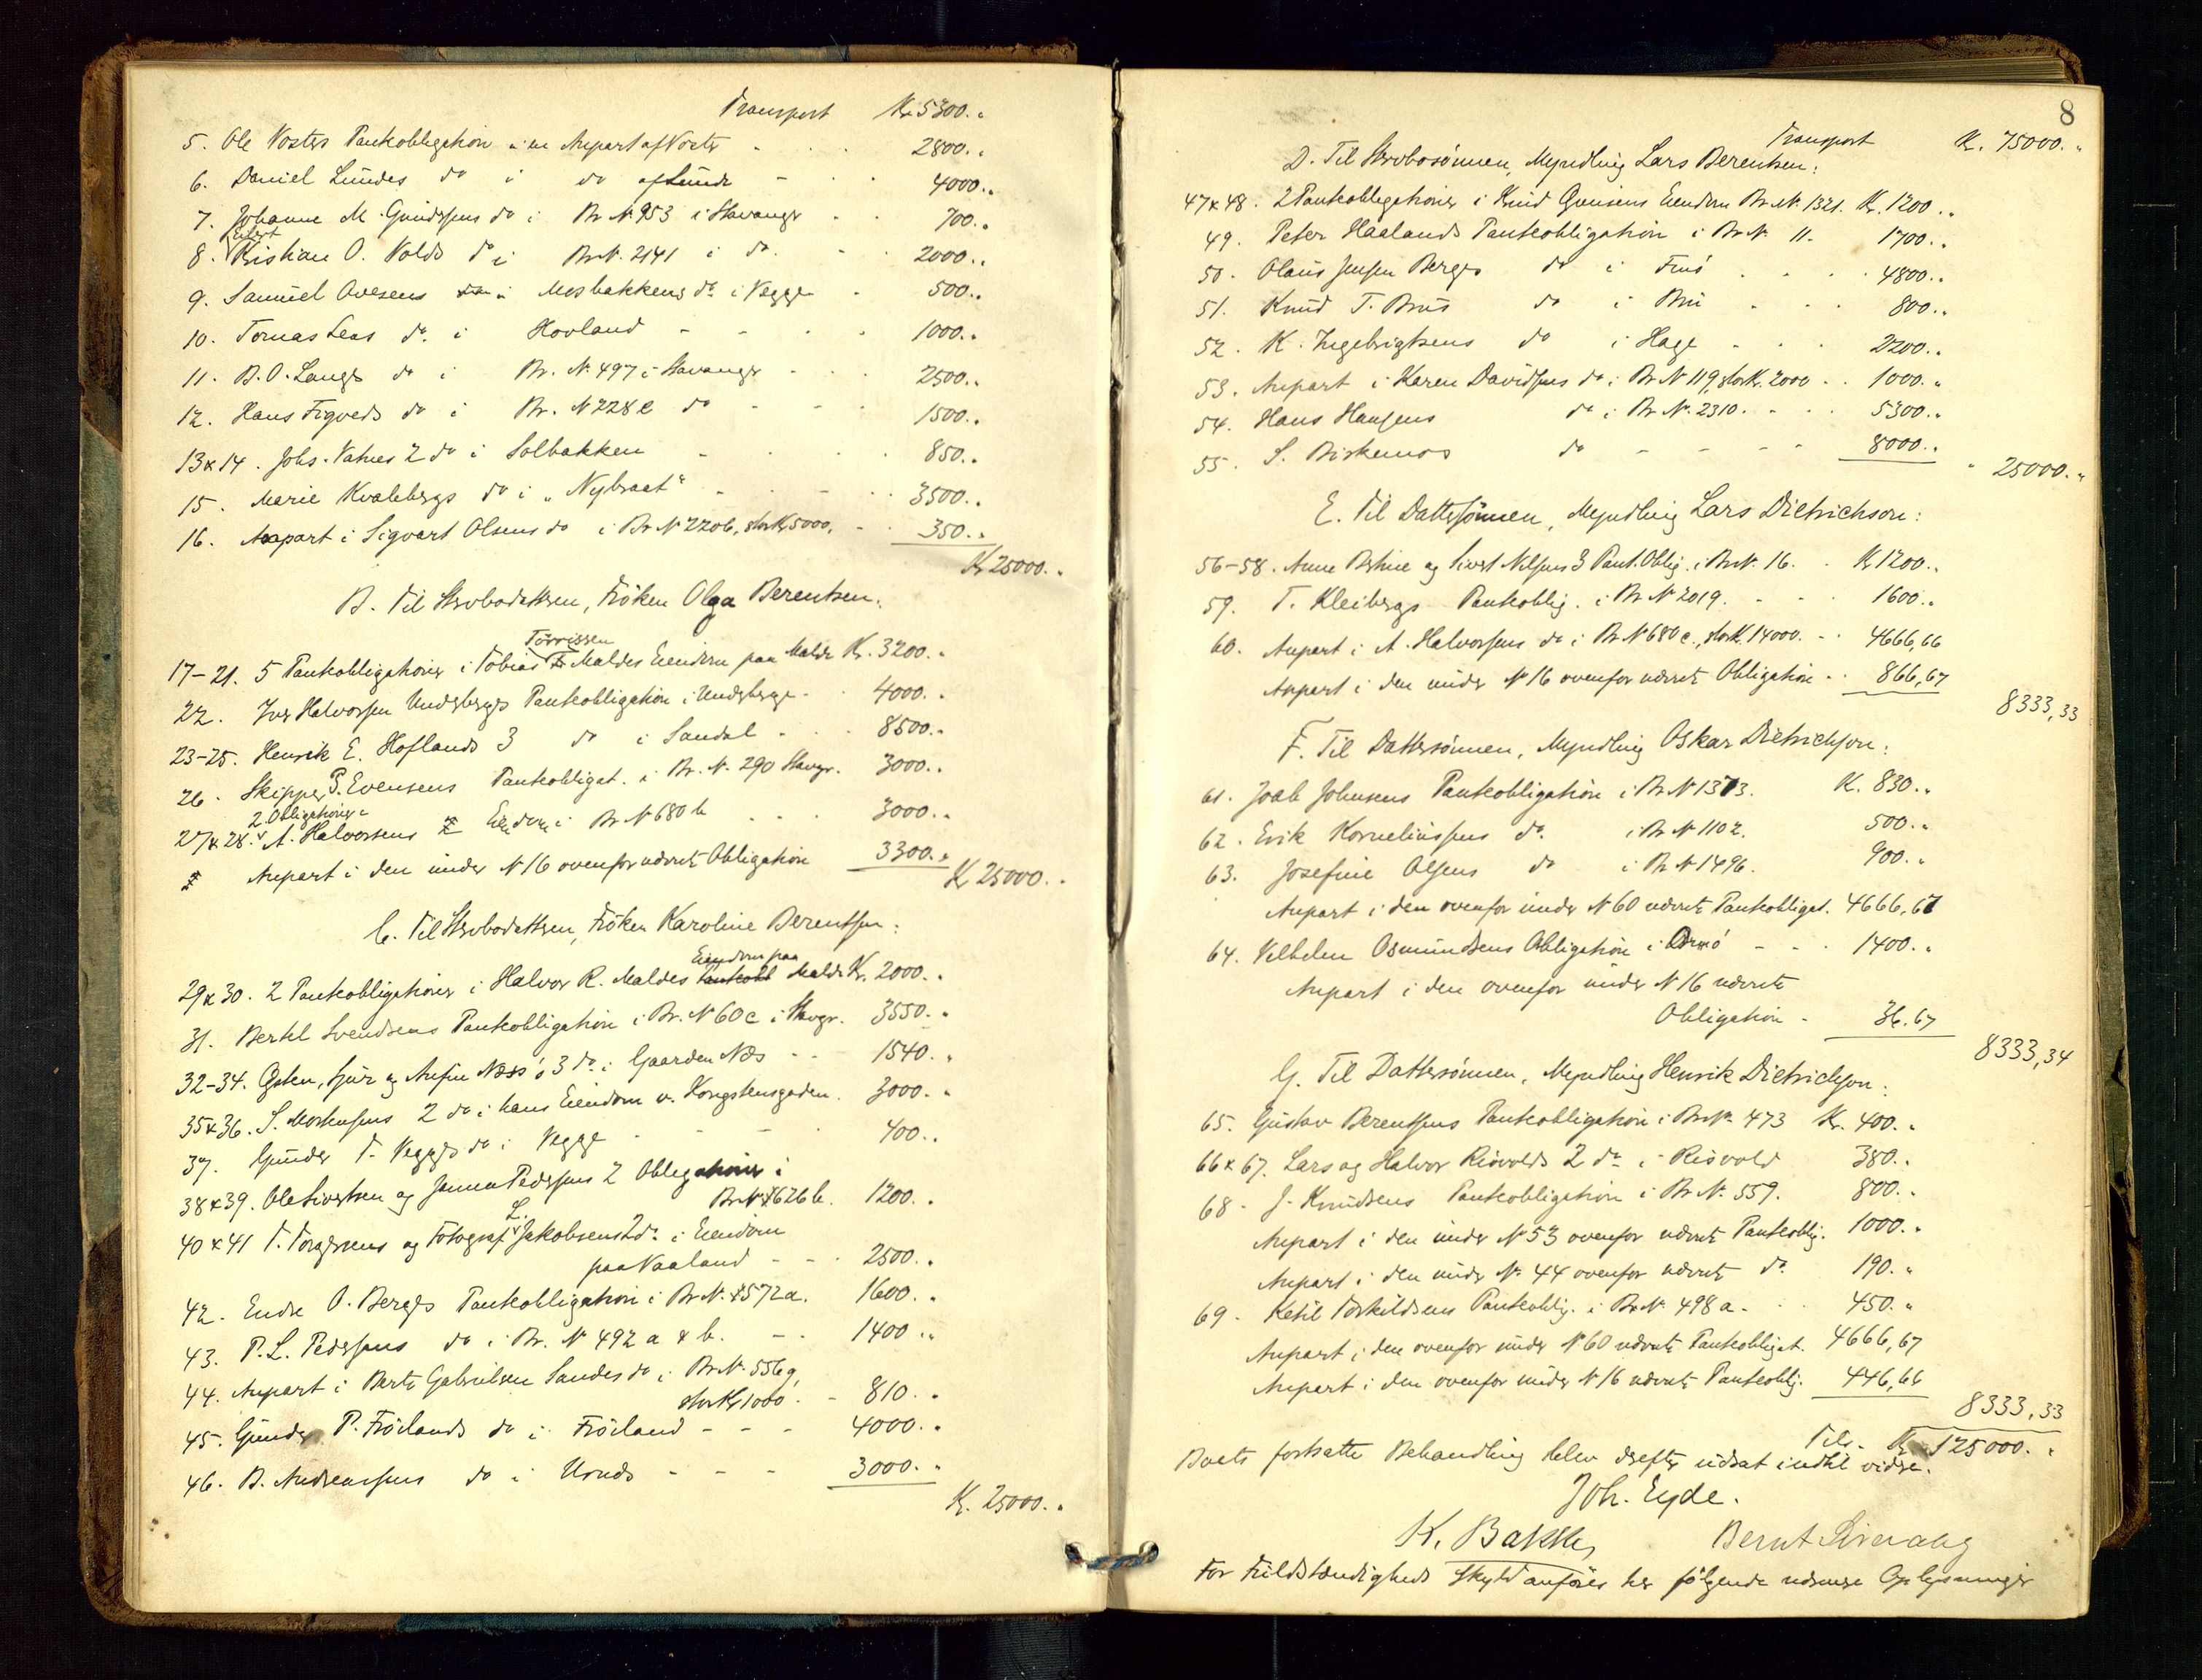 Transport Kr. 5300. "
5. Ole Vosters Panteobligation i en Anpart af Voster - - - 2800. "
6. Daniel Lundes do i do af Lunde - - - 4000. "
7. Johanne M. Gundersens do i Br. N. 953 i Stavanger - - 700. "
8. Kristian O. Volds do i Br. N. 2141 i do. - - 2000. "
9. Samuel Ovesens i Mosbakkens do i Vegge - 500. "
10. Tomas Leas do. i Hovland - - - - 1000. "
11. B. O. Langes do i Br. N. 497 i Stavanger - - - 2500. "
12. Hans Figveds do i Br. N 228e do - - - 1500. "
13 & 14. Johs. Vatnes 2 do i Solbakken - - - 850. "
15. Marie Kvalebergs do i „Nybraat" - - - 3500. "
16. Anpart i Sigvart Olsens do i Br. N 2206, stor Kr. 5000. - - 350. "
Kr 25000. "
B. Til Stervbodatteren, Fröken Olga Berentsen:
17-21. 5 Panteobligationer i Tobias Törrissen Maldes Eiendom paa Malde Kr. 3200. "
22. Iver Halvorsen Undsberges Panteobligation i Undsberge - - 4000. "
23-25. Henrik E. Hoflands 3 do i Sandal - - - 8500. "
26. Skipper P. Evensens Panteobligat. i Br. N. 290 Stavgr. 3000. "
27 & 28. 2 Obligationer i A. Halvorsens Eiendom i Br N 680 b - - - 3000. "
Anpart i den under N 16 ovenfor nævnte Obligation 3300. "
Kr 25000. "
C. Til Stervbodatteren, Fröken Karoline Berentsen:
29 & 30. 2 Panteobligationer i Halvor R. Maldes Eiendom paa Malde Kr. 2000. "
31. Bertel Svendsens Panteobligation i Br. N 60c i Stavgr. 3550. "
32-34. Østen, Sjur og Anfin Næssö 3 do i Gaarden Næs - - 1540. "
35 & 36. S. Mortensens 2 do i hans Eiendom v. Kongstensgaden. 3000. "
37. Gunder T. Vegges do i Vegge - - - 400. "
38 & 39. Ole Sivertsen og Janna Pedersens 2 Obligationer i
Br. N. 626 b. 1200. "
40 & 41 T. Torgersens og Fotograf L. Jakobsens 2 do. i Eiendom
paa Vaaland - - - 2500. "
42. Endre O. Berges Panteobligation i Br. N. 1572 a. 1600. "
43. P. L. Pedersens do i Br. N 492 a & b. - - 1400. "
44. Anpart i Berte Gabrielsen Sandes do i Br. N. 556 g,
stor Kr. 1000. - 810. "
45. Gunder P. Fröilands do i Fröiland - - - 4000. "
46. B. Andreassens do i - - - 3000. "
Kr. 25000. "
8
Transport Kr. 75000. "
D. Til Stervbosönnen, Myndling Lars Berentsen:
47 & 48. 2 Panteobligationer i Knud Eiendom Br. N. 1321. Kr. 1200. "
49. Peter Haalands Panteobligation i Br. N. 11. 1700. "
50. Olaus Jensen Berges do i - - - 4800. "
51. Knud T. Brus do i Bru - - - 800. "
52. K. Ingebrigtsens do i Hage - - - 2200. "
53. Anpart i Karen Davidsens do i Br. N 119, stor Kr. 2000 - - 1000. "
54. Hans Hansens do i Br. N. 2310. - - - 5300. "
55. S. Birkemos do - - - - 8000. "
" 25000. "
E. Til Dattersönnen, Myndling Lars Dietrichson:
56-58. Anne Bertine og Sivert Nilsens 3 Pant. Oblig. i Br. N. 16. - Kr 1200. "
59. T. Kleibergs Panteoblig. i Br. N 2019. - - - 1600. "
60. Anpart i A. Halvorsens do i Br. N 680 c., stor Kr. 14000. - - 4666,66
Anpart i den under N 16 ovenfor nævnte Obligation - - 866,67
8333,33
F. Til Dattersönnen, Myndling Oskar Dietrichson:
61. Joab Johnsens Panteobligation i Br. N 1373. K. 830. "
62. Erik Korneliussens do. i Br. N 1102. 500. "
63. Josefine Olsens do i Br. N 1496. 900. "
Anpart i den ovenfor under N 60 nævnte Panteobligat. 4666,67
64. Velhelm Osmundsens Obligation i - - - 1400. "
Anpart i den ovenfor under N 16 nævnte
Obligation - 36.67
8333,34
G. Til Dattersönnen, Myndling Henrik Dietrichson:
65. Gustav Berentsens Panteobligation i Br. N. 473 Kr. 400. "
66 & 67. Lars og Halvor Risvolds 2 do i Risvold 380. "
68. J. Knudsens Panteobligation i Br. N. 559. 800. "
Anpart i den under N 53 ovenfor nævnte Panteoblig. 1000. "
Anpart i den under N. 44 ovenfor nævnte do 190. "
69. Ketil Torkildsens Panteoblig. i Br. N. 498 a. - - 450. "
Anpart i den ovenfor under N 60 nævnte Panteobligat. 4666,67
Anpart i den ovenfor under N 16 nævnte Panteoblg. 446,66
8333,33
Tils. Kr. 125000. "
Boets fortsatte Behandling blev derefter udsat indtil videre.
Joh. Eyde.
K. Bakke, Bernt
For Fuldstændigheds Skyld anföres her følgende nærmere Oplysninger